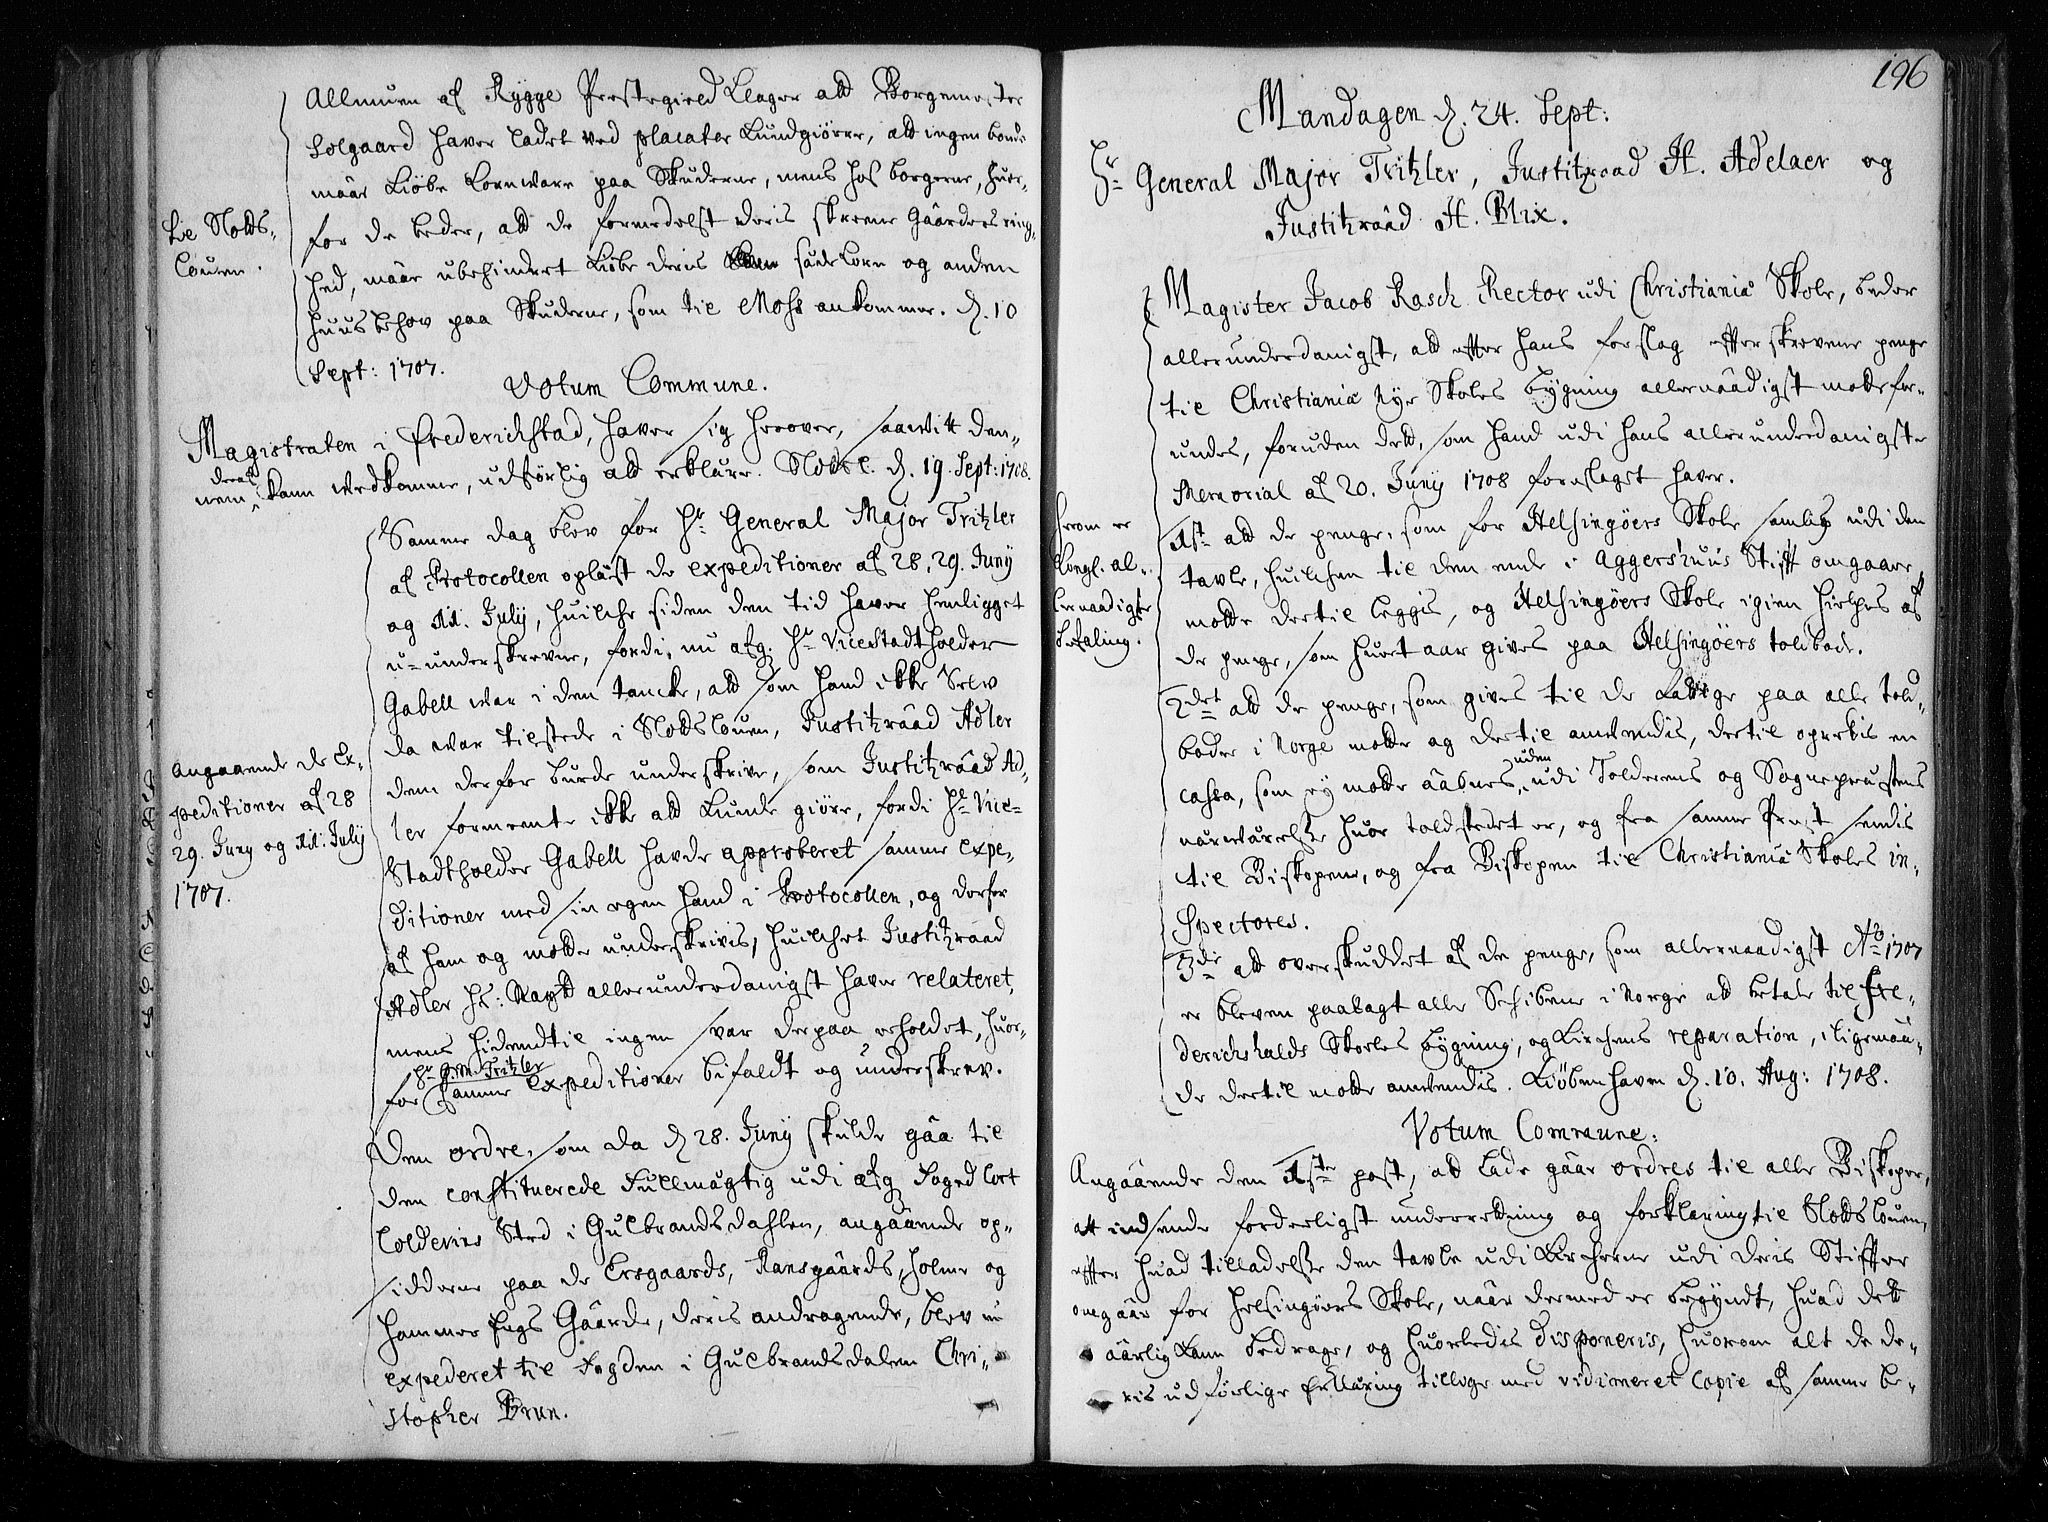 Allmuen af Rygge Prestegield klager att Borgemester
Solgaard haver ladet ved placater kundgiörre, att ingen bonde
maar kiöbe kornvare paa Skuderne, mens hos borgerne, huor-
for de beder, att de formedelst deris skreene Gaarders ring-
hed, maar ubehindret kiöbe deris saedekorn og anden
huusbehov paa Skuderne, som til Mohs ankommer. d. 10
Sept: 1707.
til Slotts-
louen.
Votum Commune.
Magistraten i Frederichstad, haver sig herover, saavitt den-
nem deraf kann vedkomme, udförlig att erklære. Slottsl. d. 19. Sept: 1708.
Samme dag blev for Hr. General Major Tritzler
af Protocollen oplæst de expeditioner af 28, 29. Juny
og 11. July, huilche siden den tid haver henligget
u-underskrevne, fordi, nu afg. Hr. Vicestadtholder
Gabell var i den tancke, att som hand ikke Selv
da var tilstede i Slottslouen, Justitzraad Adler
dem derfor burde underskrive, som Justitzraad Ad-
ler formeente ikke att kunde giöre, fordi Hr. Vice-
Stadtholder Gabell havde approberet samme expe-
ditioner med sin egen hand i Protocollen, og derfor
af ham og motte underskrivis, huilchet Justitzraad
Adler H: Maytt allerunderdanigst haver relateret,
mens hidendtil ingen svar derpaa erholdet, huor-
for Hr. G. M. Tritzler samme Expeditioner bifaldt og underskrev.
Angaaende de Ex-
peditioner af 28
29. Juny og 11. July
1707.
Den ordre, som da d 28. Juny skulde gaa til
den constituerede Fuldmægtig udi afg Foged Cort
Colderins Sted i Gulbrandsdahlen, angaaende op-
sidderne paa de Ersgaards, Ransgaards, Holme og
Hammer Engs Gaarde, deris andragende, blev nu
expederet til Fogden i Gulbrandsdalen Chri-
stopher Brun.
196
Mandagen d. 24. Sept:
Hr. General Major Tritzler, Justitzraad H. Adelaer og
Justitzraad H. Blix.
Magister Jacob Rasch Rector udi Christiania Skole, beder
allerunderdanigst, att effter hans forslag effterskrevne penge
til Christiania nye Skoles bygning allernaadigst motte for-
undes, foruden dett, som hand udi hans allerunderdanigste
Memorial af 20. Juny 1708 foreslaget haver.
1st. att de penge, som for Helsingöers Skole samlis udi den
tavle, huilchen til den ende i Aggershuus Stifft omgaar,
motte dertil leggis, og Helsingöers Skole igien hielpes af
de penge, som huert aar gives paa Helsingöers toldbode.
2det att de penge, som gives til de fattige paa alle told-
boder i Norge motte og dertil anvendis, dertil oprettis en
cassa, som ey motte aabnes, uden udi Tolderens og Sogneprestens
nærværelse huor toldstedet er, og fra samme Prest sendis
til Biskopen, og fra Biskopen til Christiania Skoles in-
spectores.
3die att overskuddet af de penge, som allernaadigst Ao. 1707
er bleven paalagt alle Schibene i Norge att betale til Fre-
derichshalds Skoeles bygning, og Kirchens reparation, iligemaa-
de dertil motte anvendis. Kiöbenhaven d. 10. Aug: 1708.
herom er
Kongl. al-
lernaadigste
befaling.
Votum Commune:
Angaaende den 1ste post, att lade gaar ordres til alle Biskoper,
att indsende forderligst underretning og forklaring til Slottslouen,
effter huad tilladelse den tavle udi Kircherne udi deris Stiffter
omgaar for Helsingöers Skole, naar dermed er begyndt, huad dett
aarlig kann bedrage, og huorledis disponeris, huorom alt de de-
ris udförlige Erklæring tillige med vidimeret Copie af samme be-